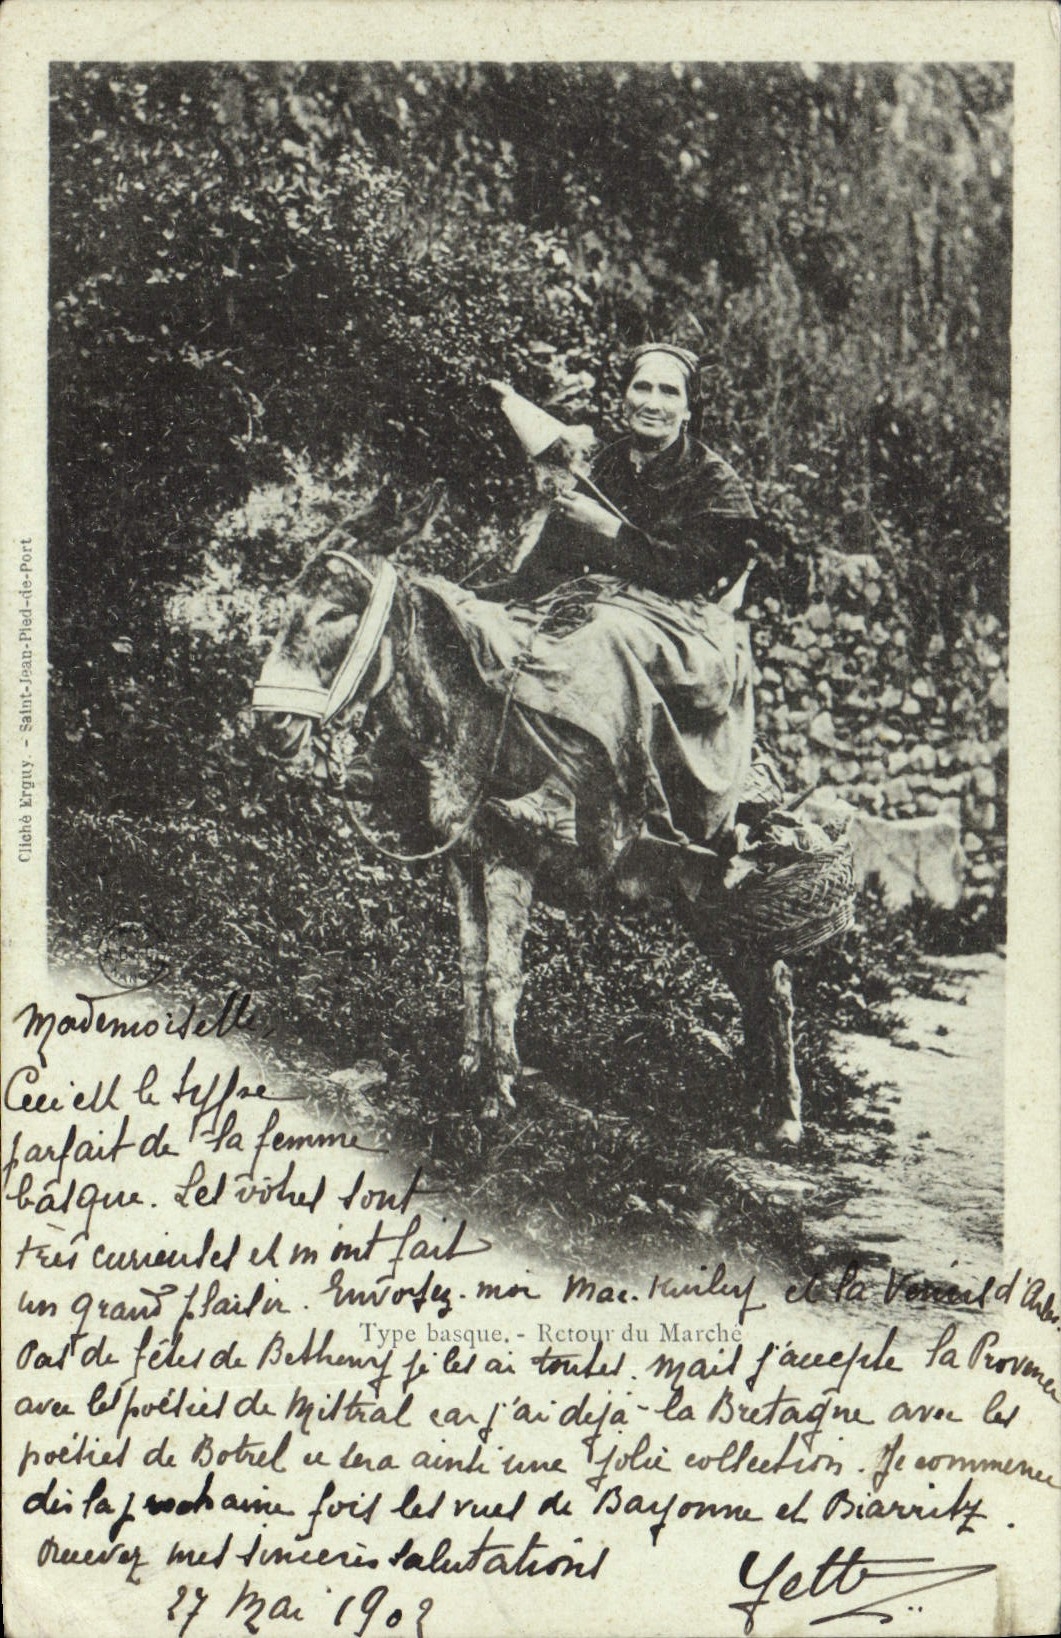 Cliché Erguy. - Saint-Jean-Pied-de-Port
Mademoiselle,
Ceci est le type
parfait de la femme
basque. Les vôtres sont
très curieuses et m'ont fait
un grand plaisir. Envoyez-moi Mac-Kinley et la Vénus d'Arles.
Type basque. - Retour du Marché
Pas de fêtes de Betheny je les ai toutes. Mais j'accepte la Provence
avec les poésies de Mistral car j'ai déjà la Bretagne avec les
poésies de Botrel ce sera ainsi une jolie collection. Je commence
dès la prochaine fois les vues de Bayonne et Biarritz.
Recevez mes sincères salutations
Yette
27 Mai 1902